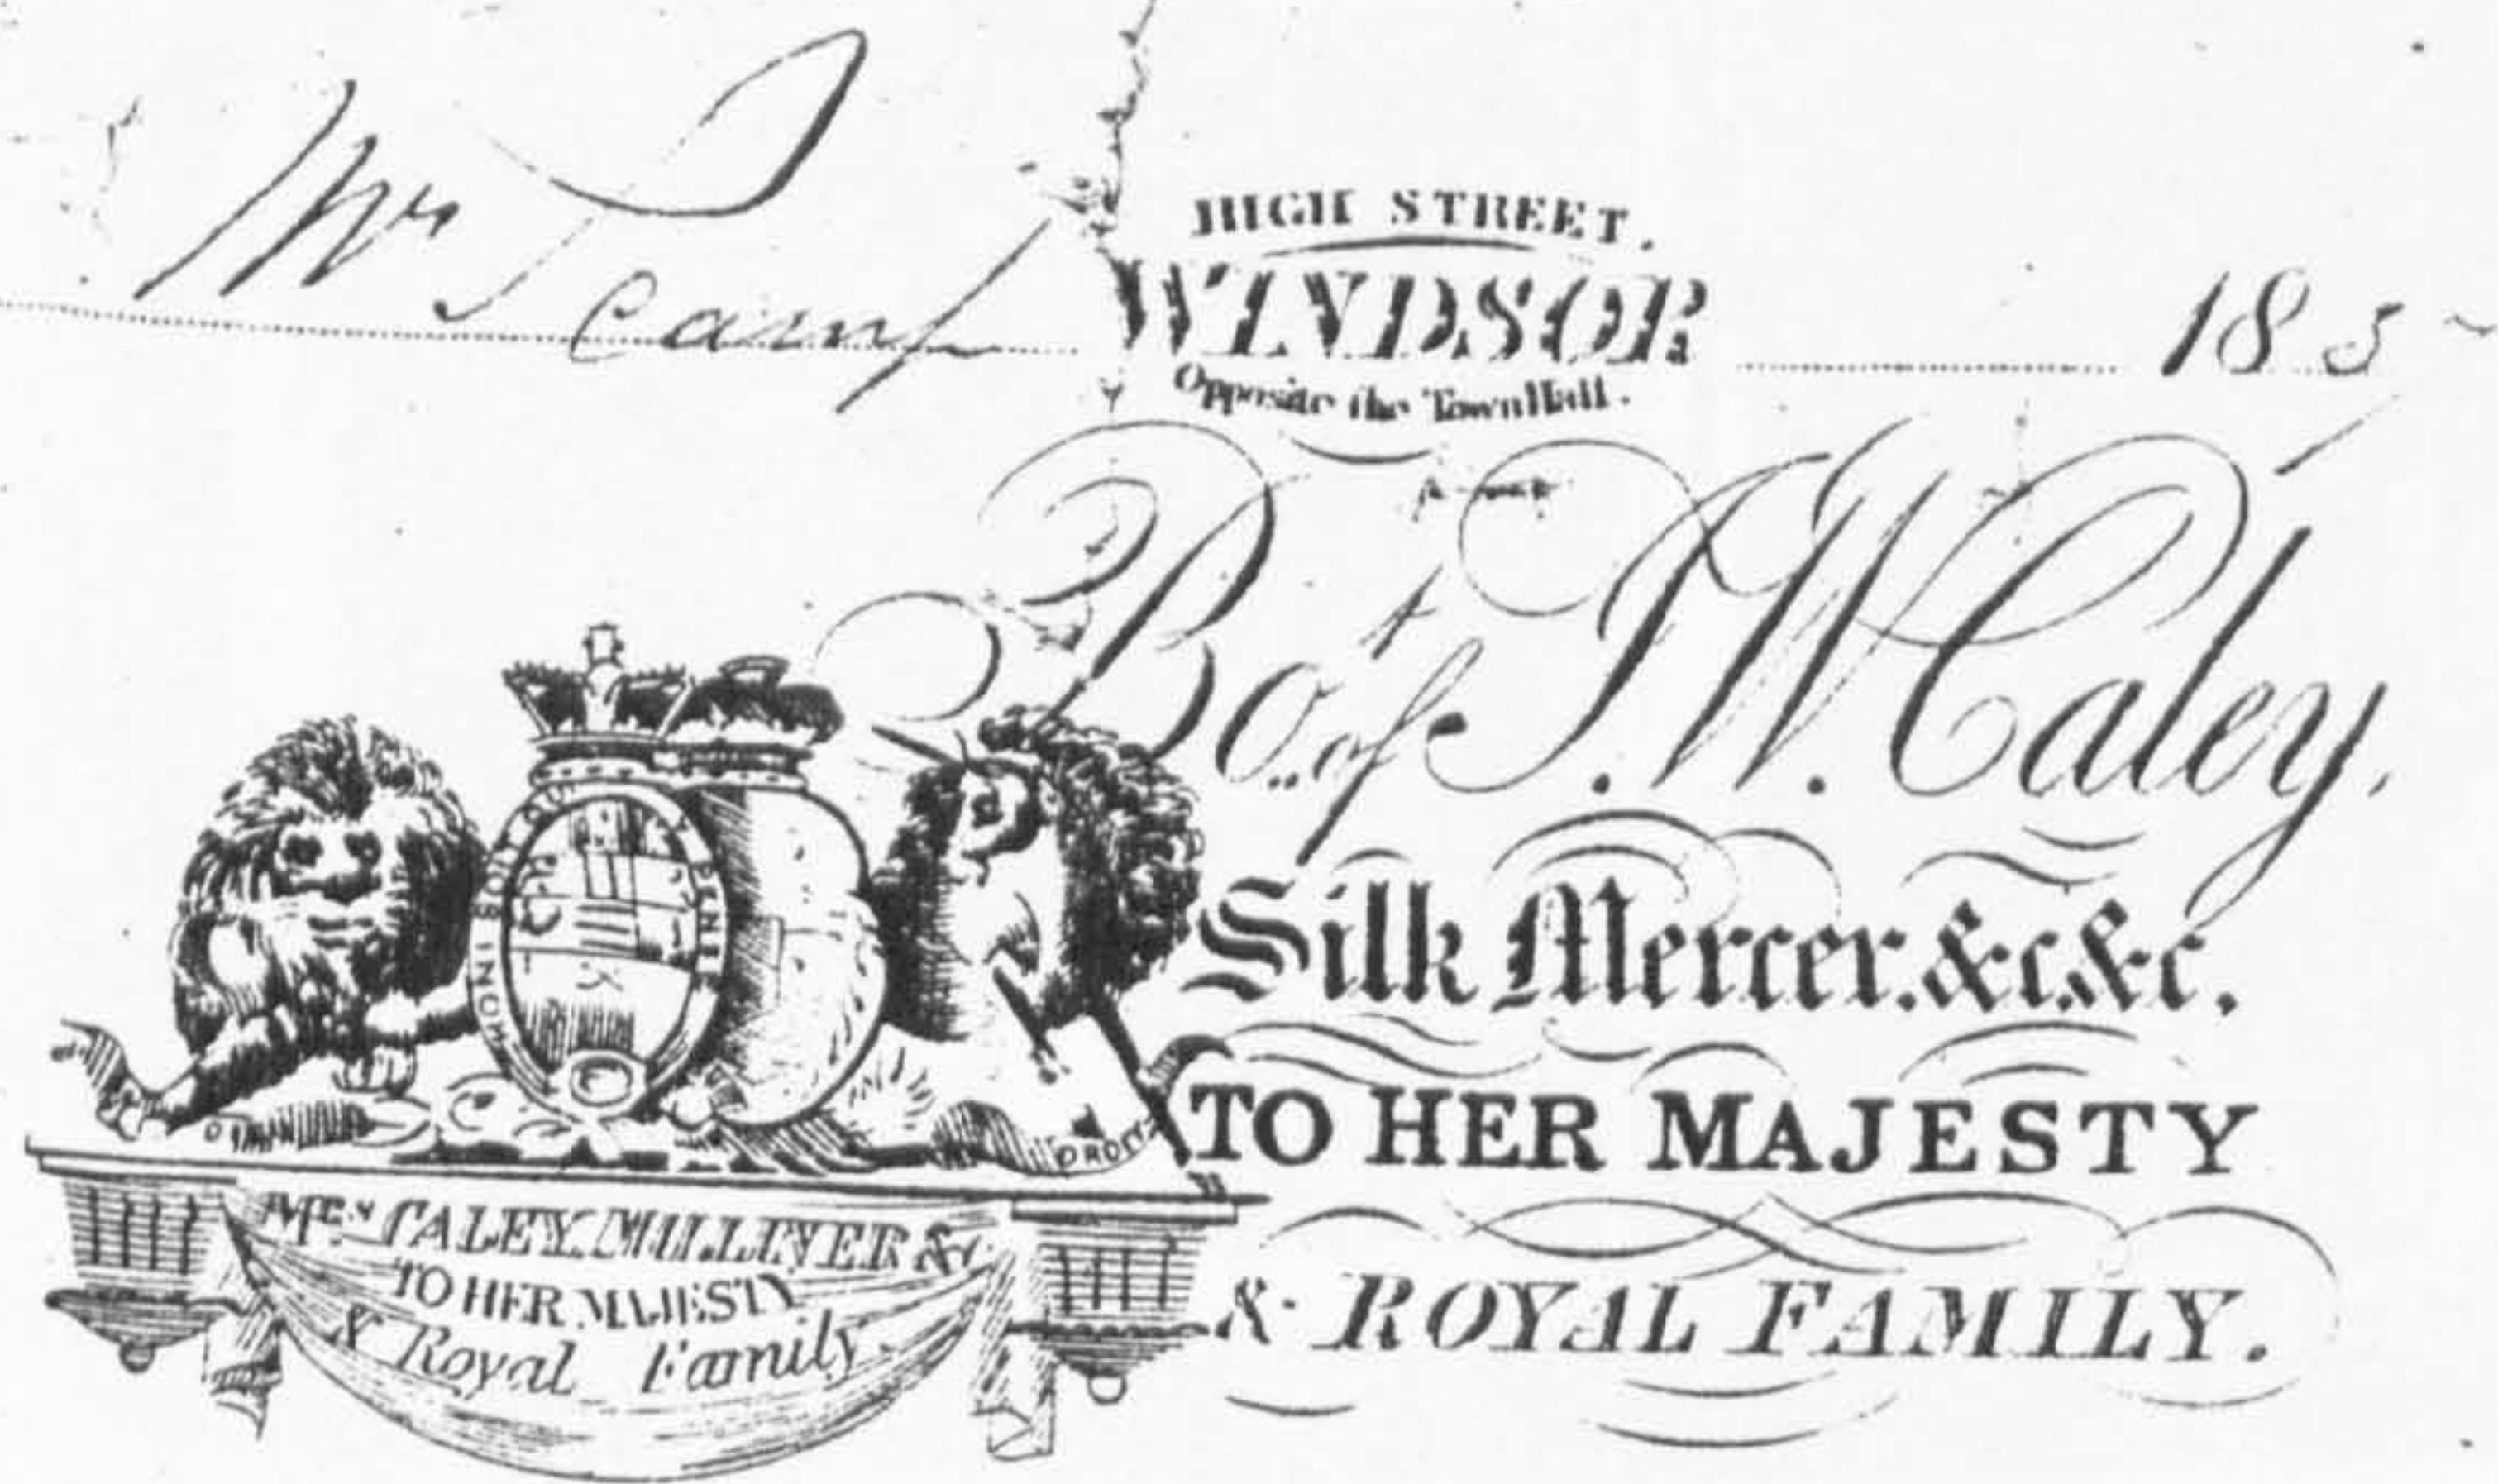 Mr Scamp
HIGH STREET.
WINDSOR
Opposite the Town Hall.
185
Bo.t of J. W. Caley,
Silk Mercer, &c. &c.
TO HER MAJESTY
& ROYAL FAMILY.
HONI SOIT QUI MAL Y PENSE
DROIT
Mrs CALEY, MILLINER &c
TO HER MAJESTY
& Royal Family